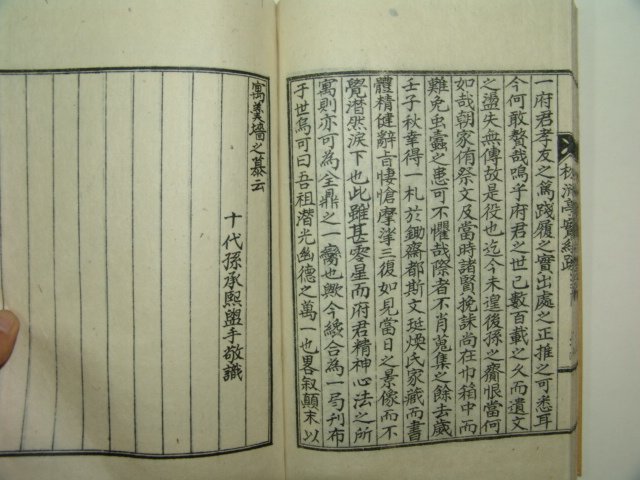 一府君孝友之篤踐履之實出處之正推之可悉耳
今何敢贅哉嗚乎府君之世已數百載之久而遺文
之盪失無傳故是役也迄今未遑後孫之齎恨當何
如哉朝家侑祭文及當時諸賢挽誄尚在巾箱中而
難免虫蠹之患可不懼哉際者不肖蒐集之餘去歲
壬子秋幸得一札於鋤齋都斯文珽煥氏家藏而書
體精健辭旨悽愴摩挲三復如見當日之景像而不
覺潸然淚下也此雖甚零星而府君精神心法之所
寓則亦可為全鼎之一臠也歟今纔合為一局刊布
于世烏可曰吾祖潛光幽德之萬一也畧叙顛末以
寓羹墻之慕云
十代孫承熙盥手敬識
亭實紀跋